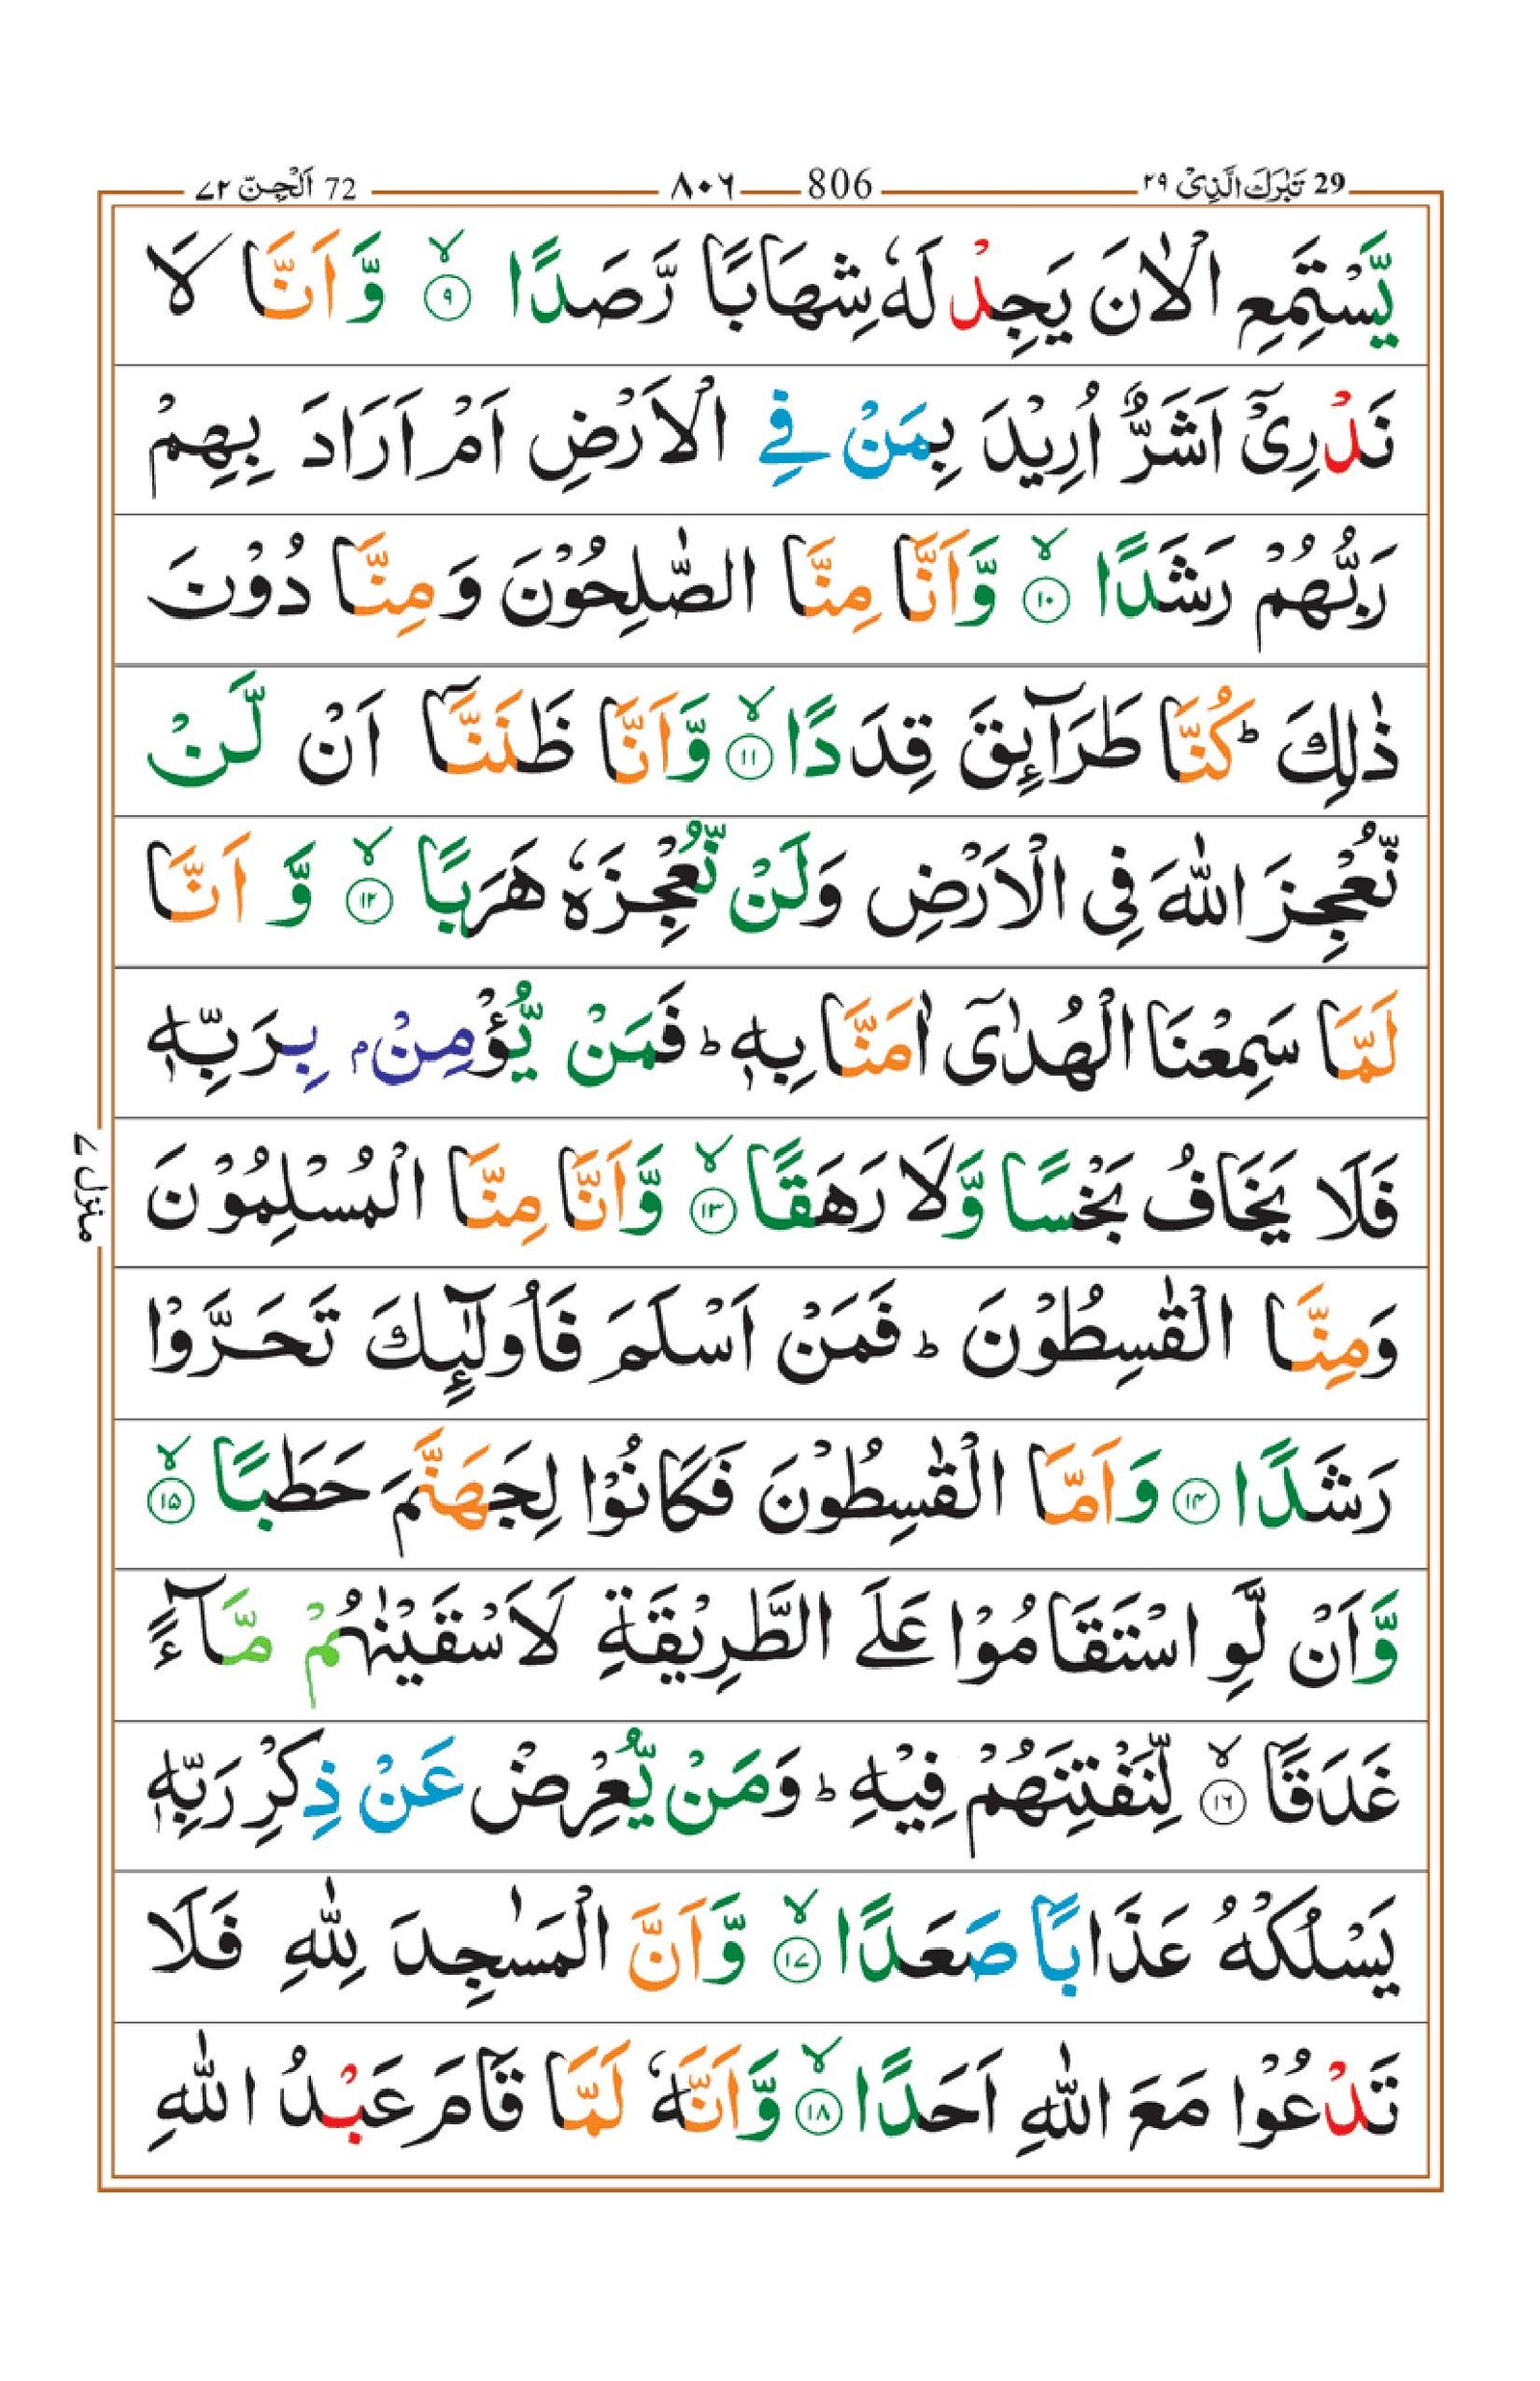 29 تَبٰرَكَ الَّذِیْ ۲۹ 806 ۸۰۶ 72 اَلْجِنّ ۷۲
یَّسْتَمِعِ الْاٰنَ یَجِدْ لَهٗ شِهَابًا رَّصَدًا ۙ﴿۹﴾ وَّاَنَّا لَا
نَدْرِیْۤ اَشَرٌّ اُرِیْدَ بِمَنْ فِی الْاَرْضِ اَمْ اَرَادَ بِهِمْ
رَبُّهُمْ رَشَدًا ۙ﴿۱۰﴾ وَّاَنَّا مِنَّا الصّٰلِحُوْنَ وَمِنَّا دُوْنَ
ذٰلِكَ ؕ كُنَّا طَرَآئِقَ قِدَدًا ۙ﴿۱۱﴾ وَّاَنَّا ظَنَنَّاۤ اَنْ لَّنْ
نُّعْجِزَ اللّٰهَ فِی الْاَرْضِ وَلَنْ نُّعْجِزَهٗ هَرَبًا ۙ﴿۱۲﴾ وَّ اَنَّا
لَمَّا سَمِعْنَا الْهُدٰۤی اٰمَنَّا بِهٖ ؕ فَمَنْ یُّؤْمِنْۢ بِرَبِّهٖ
فَلَا یَخَافُ بَخْسًا وَّلَا رَهَقًا ۙ﴿۱۳﴾ وَّاَنَّا مِنَّا الْمُسْلِمُوْنَ
وَمِنَّا الْقٰسِطُوْنَ ؕ فَمَنْ اَسْلَمَ فَاُولٰٓئِكَ تَحَرَّوْا
رَشَدًا ﴿۱۴﴾ وَاَمَّا الْقٰسِطُوْنَ فَكَانُوْا لِجَهَنَّمَ حَطَبًا ۙ﴿۱۵﴾
وَّاَنْ لَّوِ اسْتَقَامُوْا عَلَی الطَّرِیْقَةِ لَاَسْقَیْنٰهُمْ مَّآءً
غَدَقًا ۙ﴿۱۶﴾ لِّنَفْتِنَهُمْ فِیْهِ ؕ وَمَنْ یُّعْرِضْ عَنْ ذِكْرِ رَبِّهٖ
یَسْلُكْهُ عَذَابًا صَعَدًا ۙ﴿۱۷﴾ وَّاَنَّ الْمَسٰجِدَ لِلّٰهِ فَلَا
تَدْعُوْا مَعَ اللّٰهِ اَحَدًا ۙ﴿۱۸﴾ وَّاَنَّهٗ لَمَّا قَامَ عَبْدُ اللّٰهِ
منزل ۷